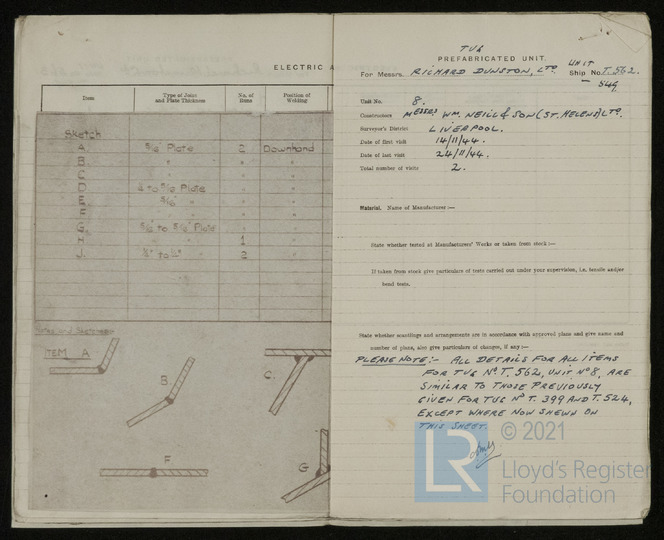 ELECTRIC A
Item
Type of Joint and Plate Thickness
No. of Items
Position of Welding
Sketch
A. 5/16" Plate 2 Downhand
B. " " "
C. " " "
D. 1/4 to 5/16 Plate "
E. 5/16" "
F. " "
G. 5/16 to 5/16 Plate "
H. " 1 "
J. 2 "
Notes and Sketches
ITEM A
B.
C.
F
G
TUG
PREFABRICATED UNIT.
For Messrs. RICHARD DUNSTON, LTD. UNIT Ship No. T.562.
Unit No. 8.
Constructors MESSRS WM. NEILL & SON (ST. HELENS) LTD.
Surveyor's District LIVERPOOL.
Date of first visit 14/11/44.
Date of last visit 24/11/44.
Total number of visits 2.
Material. Name of Manufacturer :—
State whether tested at Manufacturers' Works or taken from stock :—
If taken from stock give particulars of tests carried out under your supervision, i.e. tensile and/or
bend tests.
State whether scantlings and arrangements are in accordance with approved plans and give name and
number of plans, also give particulars of changes, if any :—
PLEASE NOTE:- ALL DETAILS FOR ALL ITEMS
FOR TUG NO. T. 562, UNIT No 8, ARE
SIMILAR TO THOSE PREVIOUSLY
GIVEN FOR TUG NO T. 399 AND T. 524,
EXCEPT WHERE NOW SHEWN ON
THIS SHEET.
LR © 2021
Lloyd's Register
Foundation